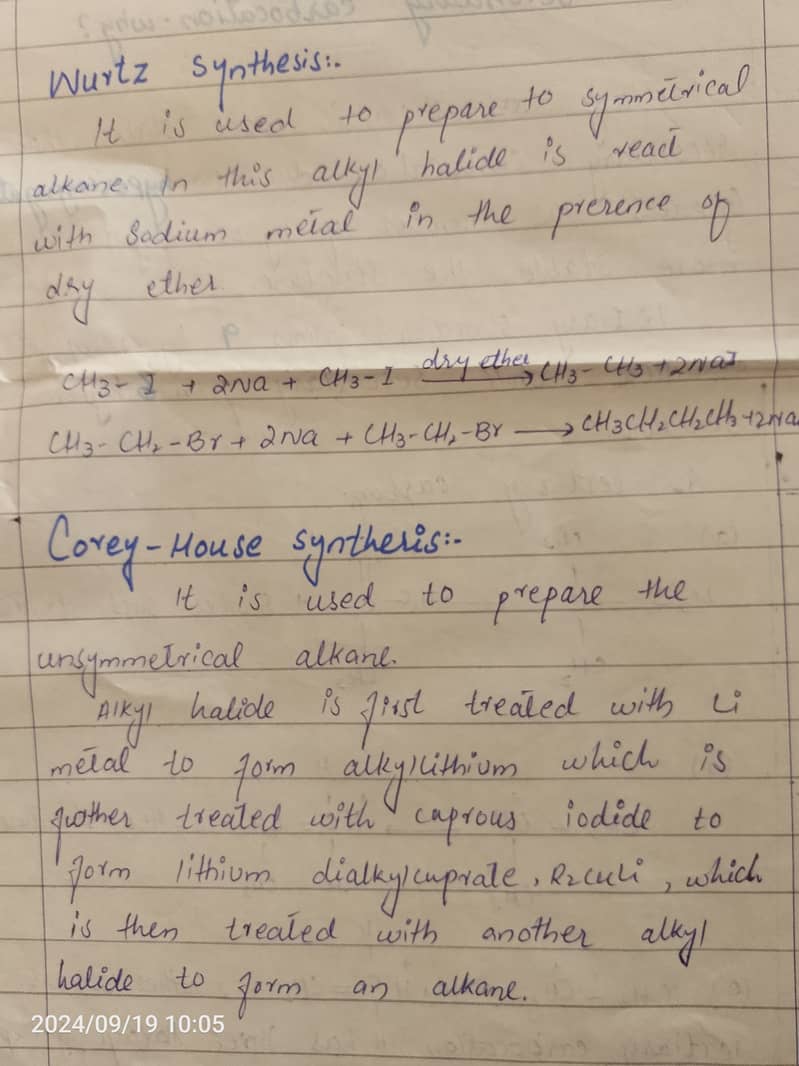 Wurtz Synthesis:-
It is used to prepare to symmetrical
alkane. In this alkyl halide is react
with Sodium metal in the presence of
dry ether
CH3-I + 2Na + CH3-I dry ether → CH3-CH3 + 2NaI
CH3-CH2-Br + 2Na + CH3-CH2-Br → CH3CH2CH2CH3+2Na
Corey-House Synthesis:-
It is used to prepare the
unsymmetrical alkane.
Alkyl halide is first treated with Li
metal to form alkyllithium which is
further treated with caprous iodide to
form lithium dialkylcuprate, R2CuLi, which
is then treated with another alkyl
halide to form an alkane.
2024/09/19 10:05